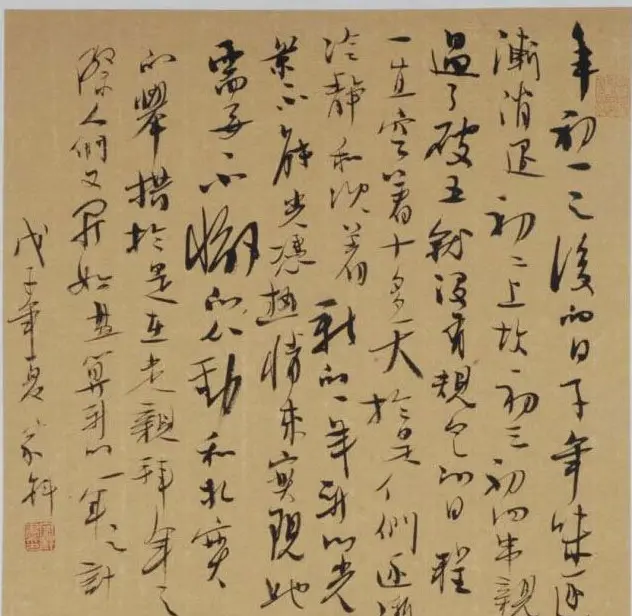 年初一之後的日子年味逐
漸消退初二上坟初三初四串親
過了破五就没有規定的日程
一直空着十多天於是人們逐漸
冷静和沉着新的一年新的光
景不能光凭熱情来實現她
需要不懈的劳動和扎實
的舉措於是在走親拜年之
際人們又開始盘算新的一年之計
戊子年夏